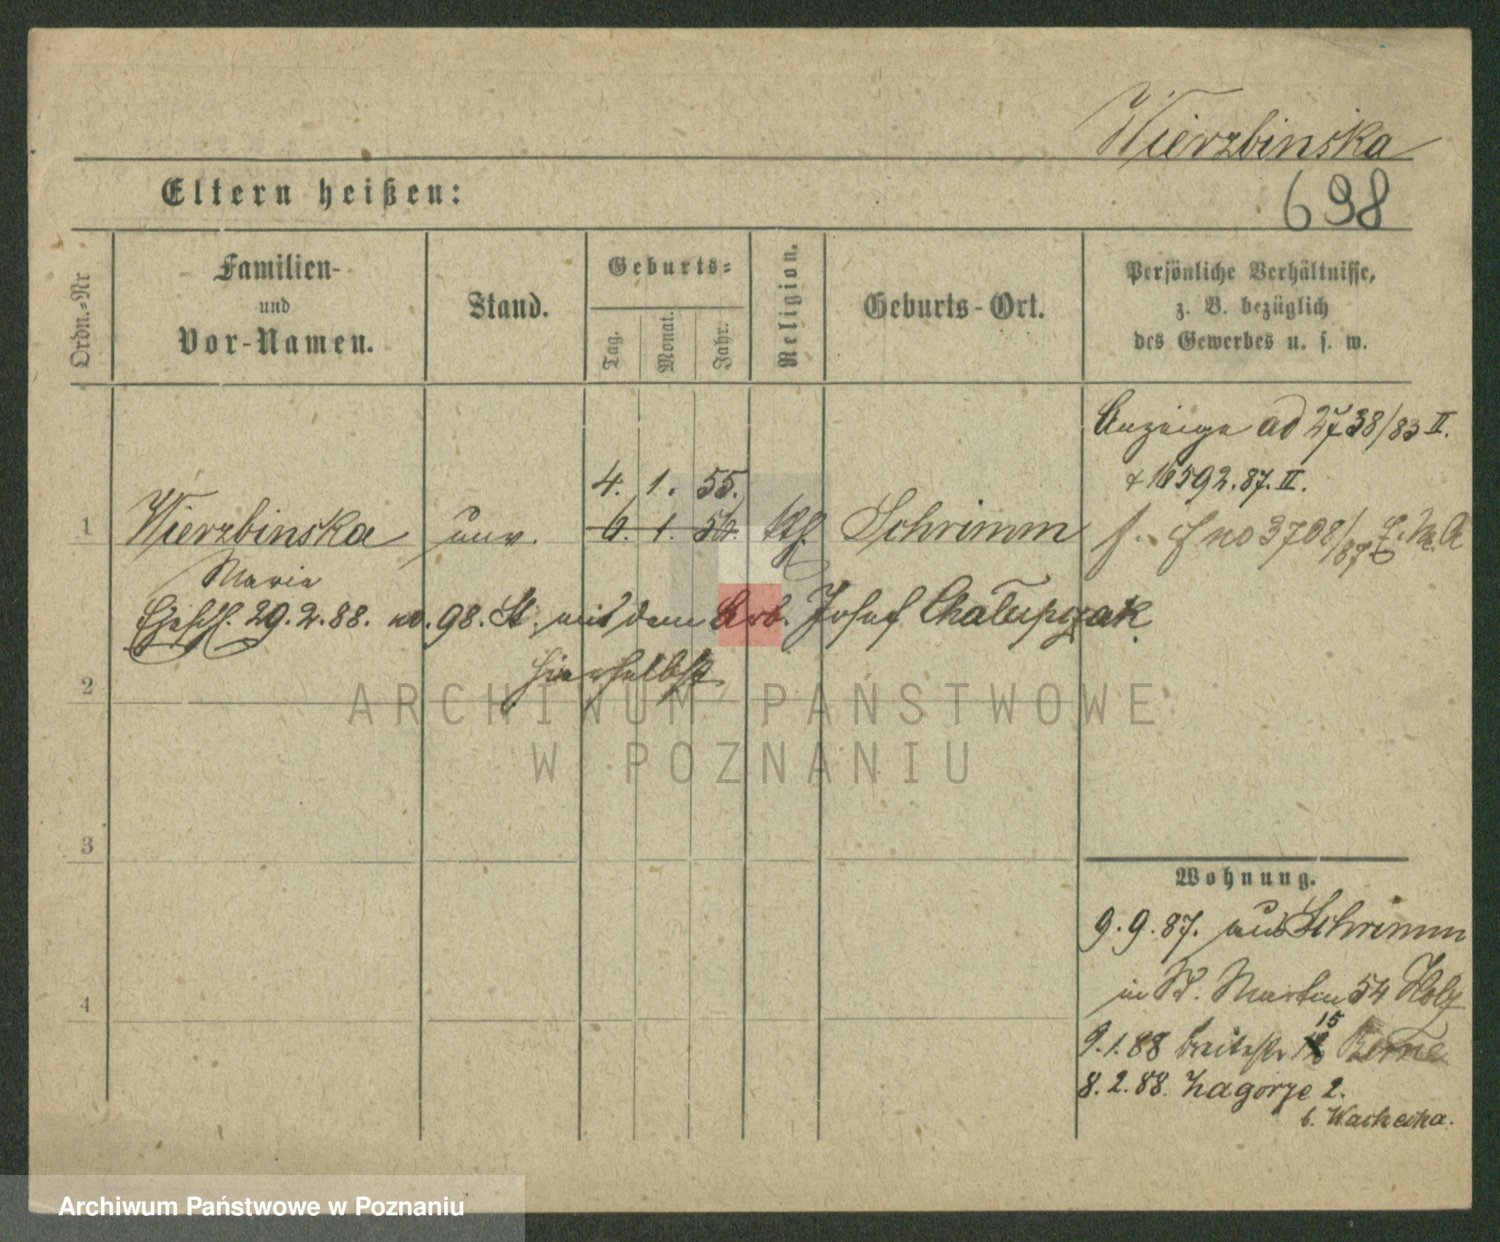 Wierzbinska
698
Eltern heißen:
Ordn.-Nr
Familien-
und
Vor-Namen.
Stand.
Geburts-
Tag.
Monat.
Jahr.
Religion.
Geburts-Ort.
Persönliche Verhältnisse,
z. B. bezüglich
des Gewerbes u. s. w.
Anzeige ad 2738/83 II.
16592.87.II.
4. 1. 55.
1 Wierzbinska unv. 6. 1. 56. kth. Schrimm
3708/87
Maria
Ehesch. 29.2.88. no. 98. St. mit dem Arb. Josef Chalupczak
hierselbst
2
3
4
Wohnung.
9.9.87. aus Schrimm
in St. Martin 54 Holz
15
9.1.88 breitestr
8.2.88. Zagorze 2.
b.
ARCHIWUM PAŃSTWOWE
W POZNANIU
Archiwum Państwowe w Poznaniu